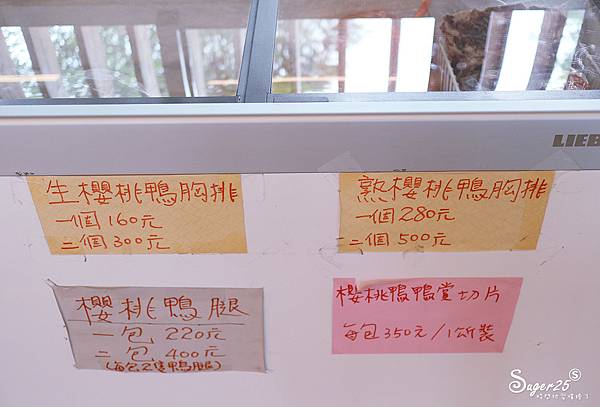 LIEB
生櫻桃鴨胸排
一個160元
二個300元
熟櫻桃鴨胸排
一個280元
二個500元
櫻桃鴨腿
一包220元
二包400元
(每包2隻鴨腿)
櫻桃鴨鴨賞切片
每包350元/1斤裝
Suger25